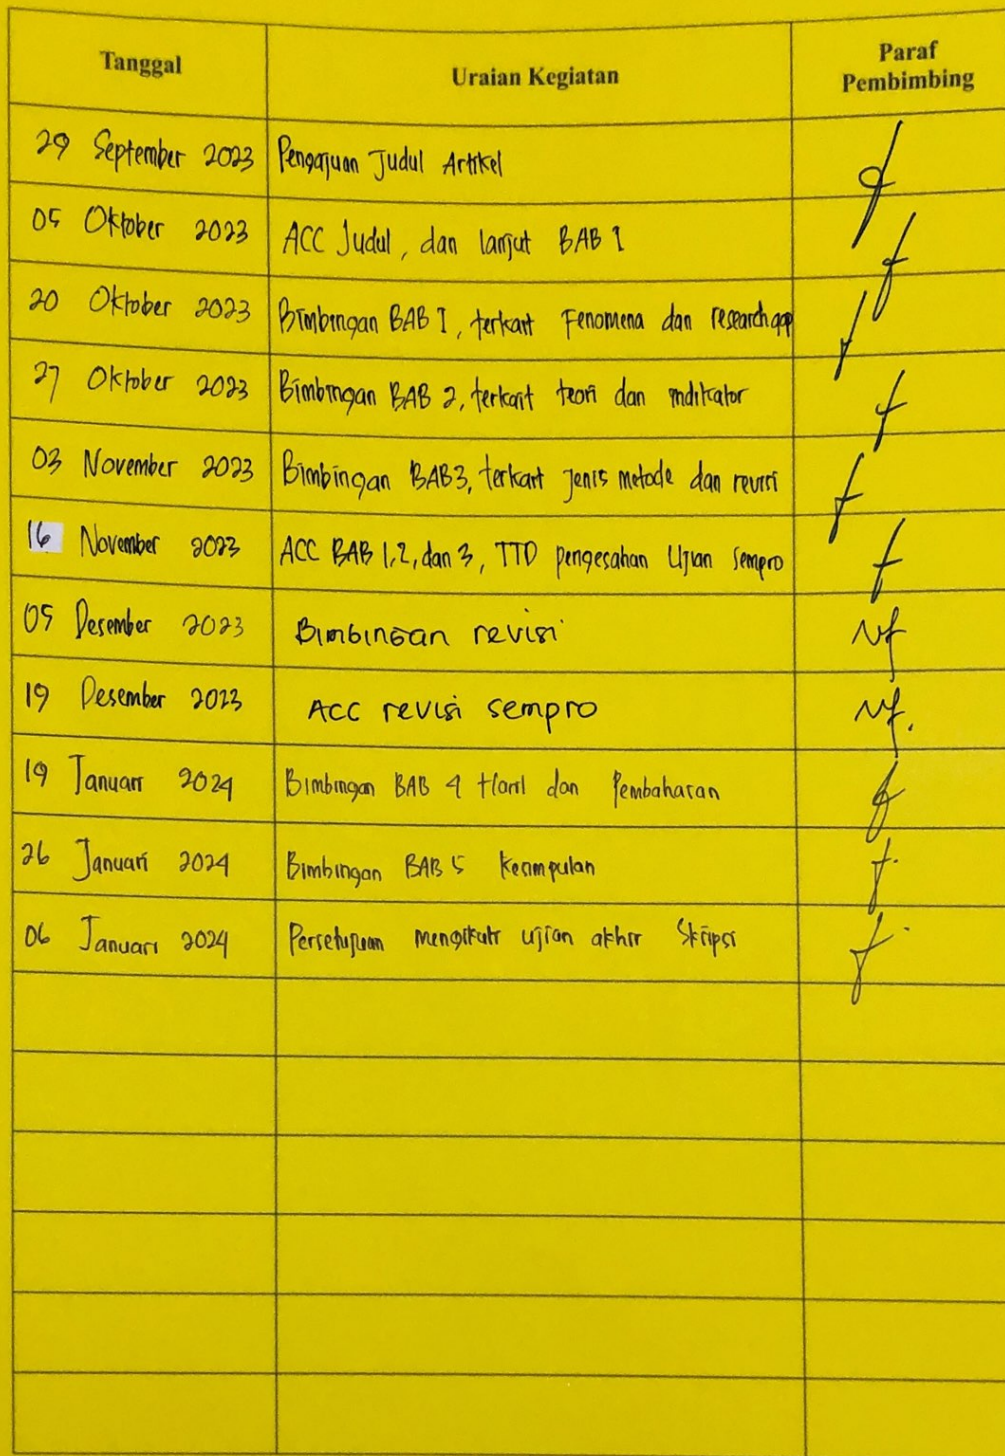 Tanggal Uraian Kegiatan Paraf Pembimbing
29 September 2023 Pengajuan Judul Artikel
05 Oktober 2023 ACC Judul, dan lanjut BAB 1
20 Oktober 2023 Bimbingan BAB 1, terkait Fenomena dan research gap
27 Oktober 2023 Bimbingan BAB 2, terkait teori dan indikator
03 November 2023 Bimbingan BAB 3, terkait jenis metode dan revisi
16 November 2023 ACC BAB 1,2, dan 3, TTD pengesahan Ujian Sempro
05 Desember 2023 Bimbingan revisi
19 Desember 2023 ACC revisi sempro
19 Januari 2024 Bimbingan BAB 4 Hasil dan Pembahasan
26 Januari 2024 Bimbingan BAB 5 Kesimpulan
06 Januari 2024 Persetujuan mengikuti ujian akhir Skripsi